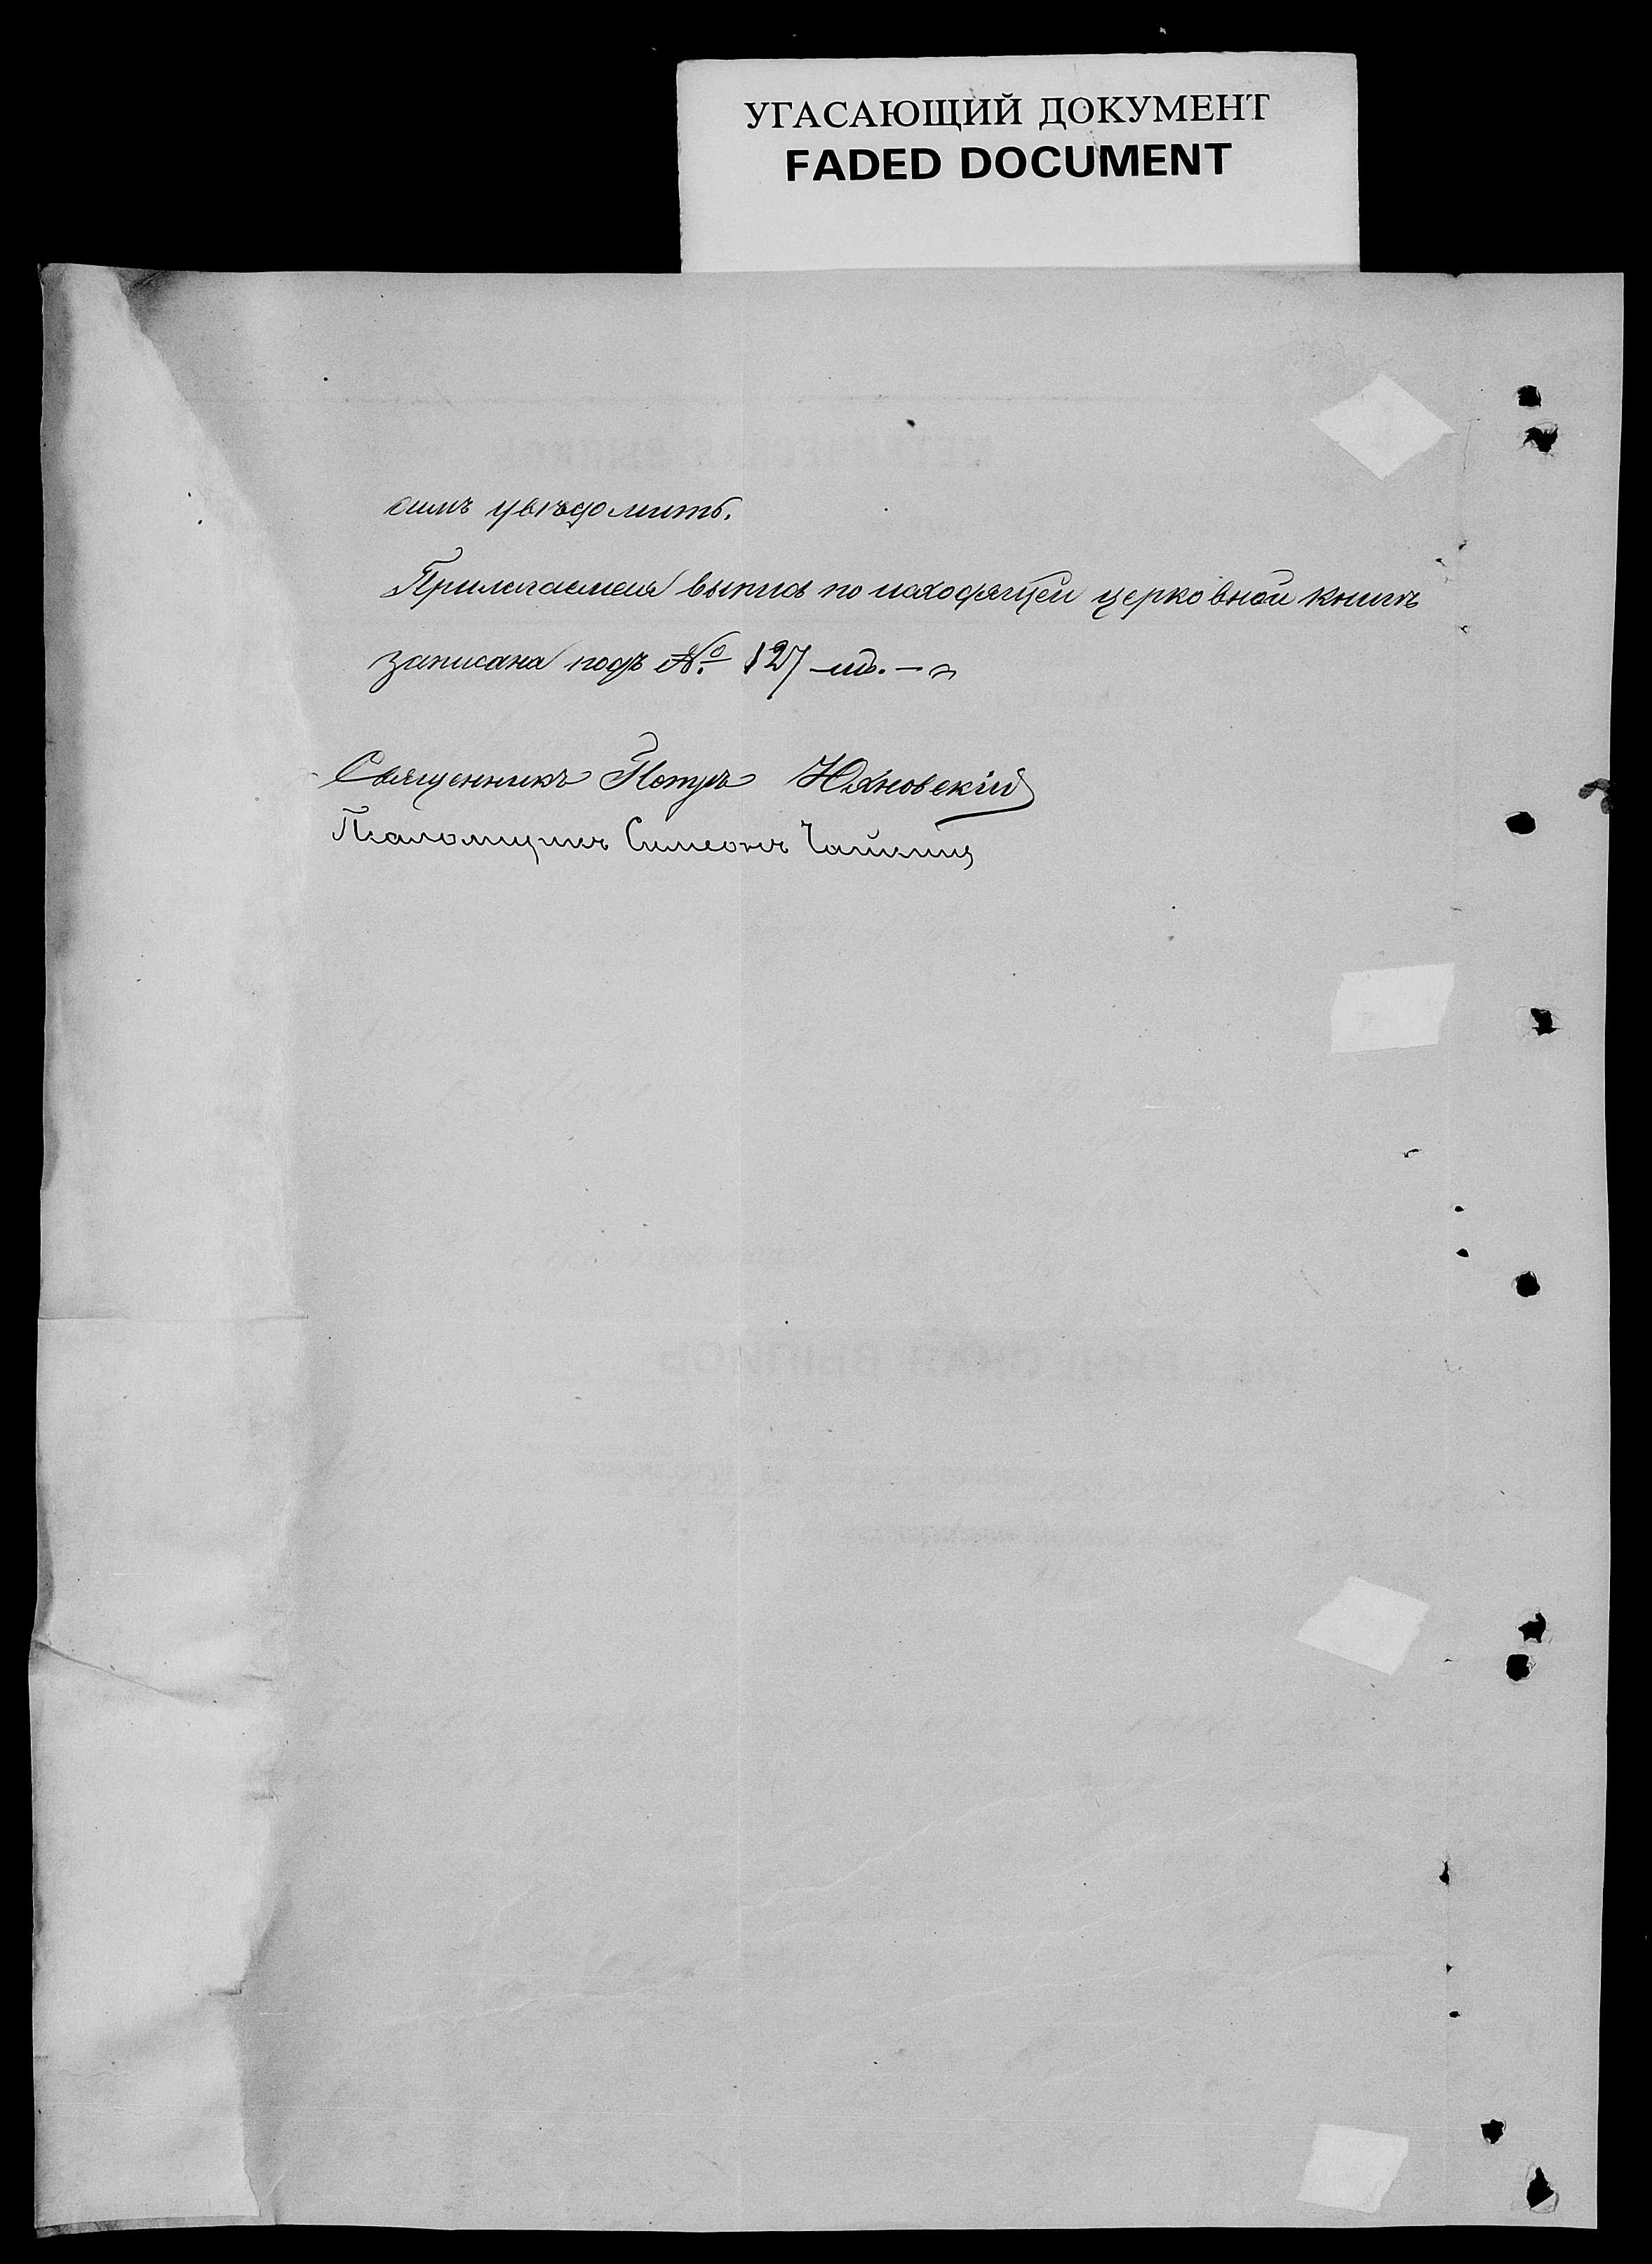 УГАСАЮЩИЙ ДОКУМЕНТ
FADED DOCUMENT
симъ увѣдомить.
Прилагаемая выпись по исходящей церковной книгѣ
записана подъ № 127 -мъ.-
Священникъ Петръ Юхновскій
Псаломщикъ Симеонъ